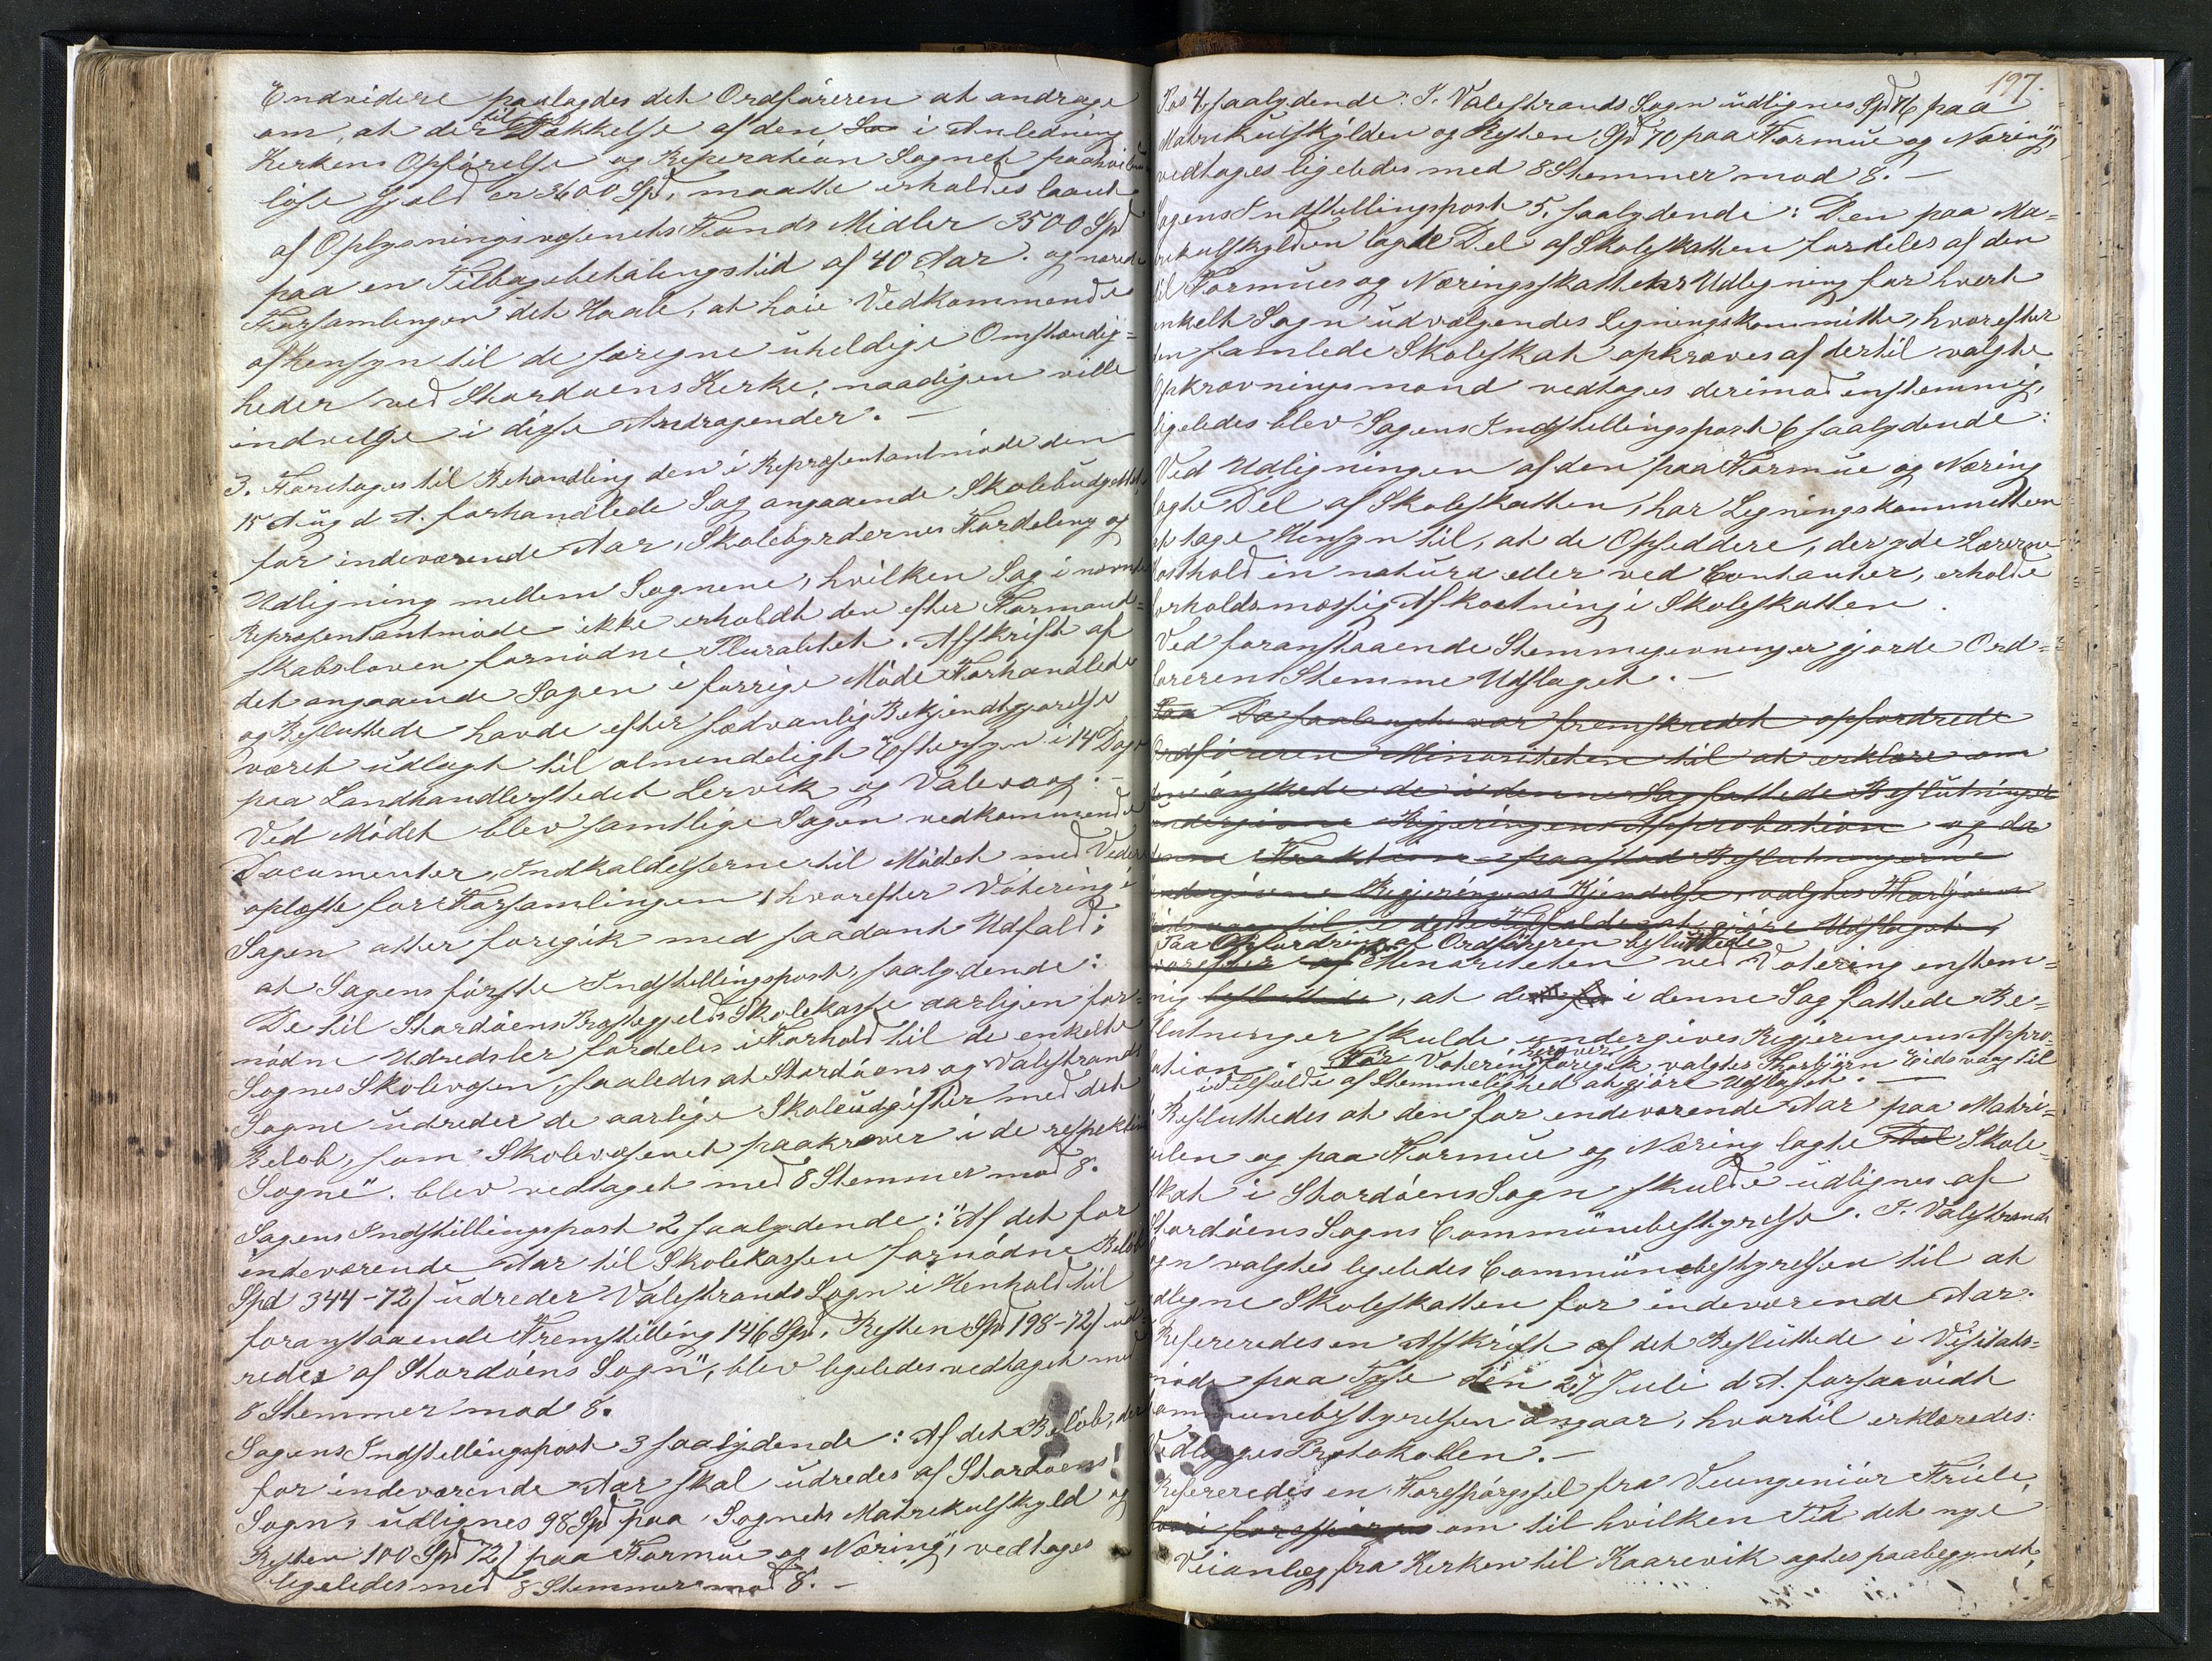 Endvidere paalagdes det Ordføreren at andrage
om, at der til Dækkelse af den Sa i Anledning
Kerkens Opførelse og Reperation Sognet paahvilen
løse Gjæld er 3600 Spd, maatte erholdes laant
af Oplysningsvæsenets Fonds Midler 3500 Spd
paa en Tilbagebetalingstid af 40 Aar. og nærede
Forsamlingen det Haab, at høie Vedkommende
af Hensyn til de særegne uheldige Omstændig=
heder ved Stordøens Kerke, naadigen ville
indvilge i disse Andragender. —
3. Foretoges til Behandling den i Repræsentantmøde den
15 Aug d. A. forhandlede Sag angaaende Skolebudgettet
for indeværende Aar, Skolebyrdernes Fordeling og
Udligning mellem Sognene, hvilken Sag i nævnte
Repræsentantmøde ikke erholdt den efter Formand=
skabsloven fornødne Pluralitet. Afskrift af
det angaaende Sagen i forrige Møde Forhandlede
og Besluttede havde efter sædvanlig Bekjendtgjørelse
været udlagt til almindeligt Eftersyn i 14 Dage
paa Landhandlerstedet Lervik og Valevaag. —
Ved Mødet blev samtlige Sagen vedkommende
Documenter, Indkaldelserne til Mødet med Videre
oplæste for Forsamlingen, hvorefter Votering i
Sagen atter foregik med saadant Udfald:
at Sagens første Indstillingspost, saalydende:
De til Stordøens Præstegjelds Skolekasse aarligen for=
nødne Udredsler fordeles i Forhold til de enkelte
Sognes Skolevæsen, saaledes at Stordøens og Valestrands
Sogne udreder de aarlige Skoleudgifter med det
Beløb, som Skolevæsenet paakræver i de respektive
Sogne". blev vedtaget med 8 Stemmer mod 8.
Sagens Indstillingspost 2 saalydende: "Af det for
indeværende Aar til Skolekassen fornødne Beløb
Spd 344-72/ udreder Valestrands Sogn i Henhold til
foranstaaende Fremstilling 146 Spd, Resten Spd 198-72/ ud=
redes af Stordøens Sogn", blev ligeledes vedtaget med
8 Stemmer mod 8.
Sagens Indstillingspost 3 saalydende: Af det Beløb, der
for indeværende Aar skal udredes af Stordøens
Sogn, udlignes 98 Spd paa Sognets Matrikulskyld og
Resten 100 Spd 72/ paa Formue og Næring", vedtoges
ligeledes med 8 Stemmer mod 8. —
197.
Pos 4, saalydende: I Valestrands Sogn udlignes Spd 76 paa
Matrikulskylden og Resten Spd 70 paa Formue og Næring",
vedtoges ligeledes med 8 Stemmer mod 8. —
Sagens Indstillingspost 5, saalydende: Den paa Ma=
trikulskylden lagte Del af Skoleskatten fordeles af den
til Formues og Næringsskattens Udligning for hvert
enkelt Sogn udvælgendes Ligningskommitte, hvorefter
den samlede Skoleskat opkræves af dertil valgte
Opkrævningsmænd vedtoges derimod enstemmig,
ligeledes blev Sagens Indstillingspost 6 saalydende:
Ved Udligningen af den paa Formue og Næring
lagte Del af Skoleskatten, har Ligningskommitteen
at tage Hensyn til, at de Opsiddere, der yde Lærerne
Kosthold in natura eller ved Contanter, erholde
forholdsmæssig Afkortning i Skoleskatten.
Ved foranstaaende Stemmegivninger gjorde Ord=
førerens Stemme Udslaget. —
Da saalangt var fremskredet opfordrede
Ordføreren Minoriteten til at erklære om
den ønskede de i denne Sag fattede Beslutninger
undergivne Regjeringens Approbation og da
denne Fraktion paastod Beslutningerne
undergivne Regjeringens Kjendelse, valgtes Thorbjørn
Eidsvaag til i dette Tilfælde at gjøre Udslaget,
Paa Opfordring af Ordføreren besluttede
hvorefter af Minoriteten ved Votering enstem=
mig besluttede, at de i denne Sag fattede Be=
slutninger skulde undergives Regjeringens Appro=
bation. Før Votering herover foregik, valgtes Thorbjørn Eidsvaag til
i Tilfælde af Stemmelighed at gjøre Udslaget. —
Besluttedes at den for indeværende Aar paa Matri=
kulen og paa Formue og Næring lagte Del Skole=
skat i Stordøens Sogn skulde udlignes af
Stordøens Sogns Communebestyrelse. I Valestrands
Sogn valgtes ligeledes Communebestyrelsen til at
udligne Skoleskatten for indeværende Aar.
Refereredes en Afskrift af det Besluttede i Visitats=
møde paa Tyse den 27 Juli d. A. forsaavidt
Communebestyrelsen angaar, hvortil erklæredes:
Vedlægges Protokollen. —
Refereredes en Forespørgsel fra Veiingeniør Friele,
hvori forespørges om til hvilken Tid det nye
Veianlæg fra Kerken til Kaarevik agtes paabegyndt,